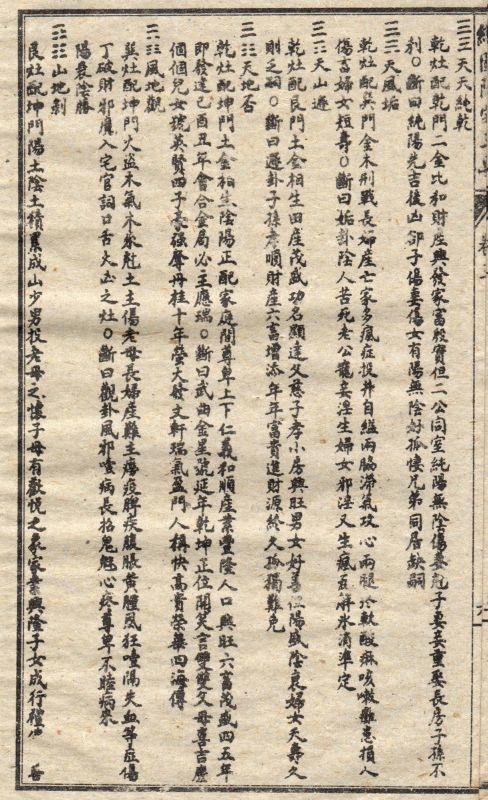 三三天天純乾
乾灶配乾門二金比和財產興發家富殷實但二公同室純陽無陰傷妻尅子妻妾重娶長房子孫不
利○斷曰純陽先吉後凶卻子傷妻傷女有陽無陰對孤悽兄弟同居缺嗣
天風姤
乾灶配巽門金木刑戰長婦產亡家多瘋症投井自縊兩脇滯氣攻心兩腿冷軟酸麻咳嗽難忍損人
傷言婦女短壽○斷曰姤卦陰人苦死老公寵妾淫生婦女邪淫又生瘋瓦解氷消準定
天山遯
乾灶配艮門土金相生田產茂盛功名顯達父慈子孝小房興旺男女好善仁陽盛陰衰婦女夭壽久
則乏嗣○斷曰遯卦子孫孝順財產六畜增添年年富貴進財源終久孤獨難免
天地否
乾灶配坤門土金相生陰陽正配家庭間尊卑上下仁義和順產業豐隆人口興旺六畜茂盛四五年
即發達已酉丑年會合金局必主應瑞○斷曰武曲金星號延年乾坤正位開笑言雙雙父母喜吉慶
個個兒女號英賢四子豪强聲丹桂十年榮大發文軒瑞氣盈門人稱快高賞榮華四海傳
風地觀
巽灶配坤門火盜木氣木來尅土主傷老母長婦產難主瘵疫脾疾腹脹黃腫風狂噎隔失血等症傷
丁破財邪魔入宅官詞口舌火土之灶○斷曰觀卦風邪噎病長招鬼魁心疼尊卑不睦病來
陽衰陰勝
山地剝
艮灶配坤門陽土陰土積累成山少男投老母之懷子母有歡悅之象家業興隆子女成行禮 善